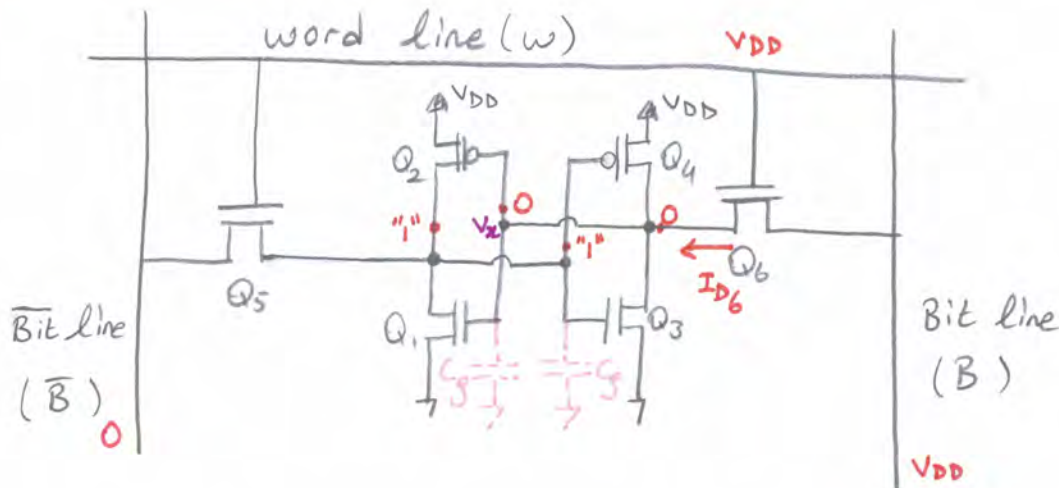 word line (w)
VDD
VDD
VDD
Q2
Q4
"1"
0
Vx
"1"
0
Q5
ID6
Q6
Q1
Q3
Cg
Cg
Bit line
(B)
0
Bit line
(B)
VDD